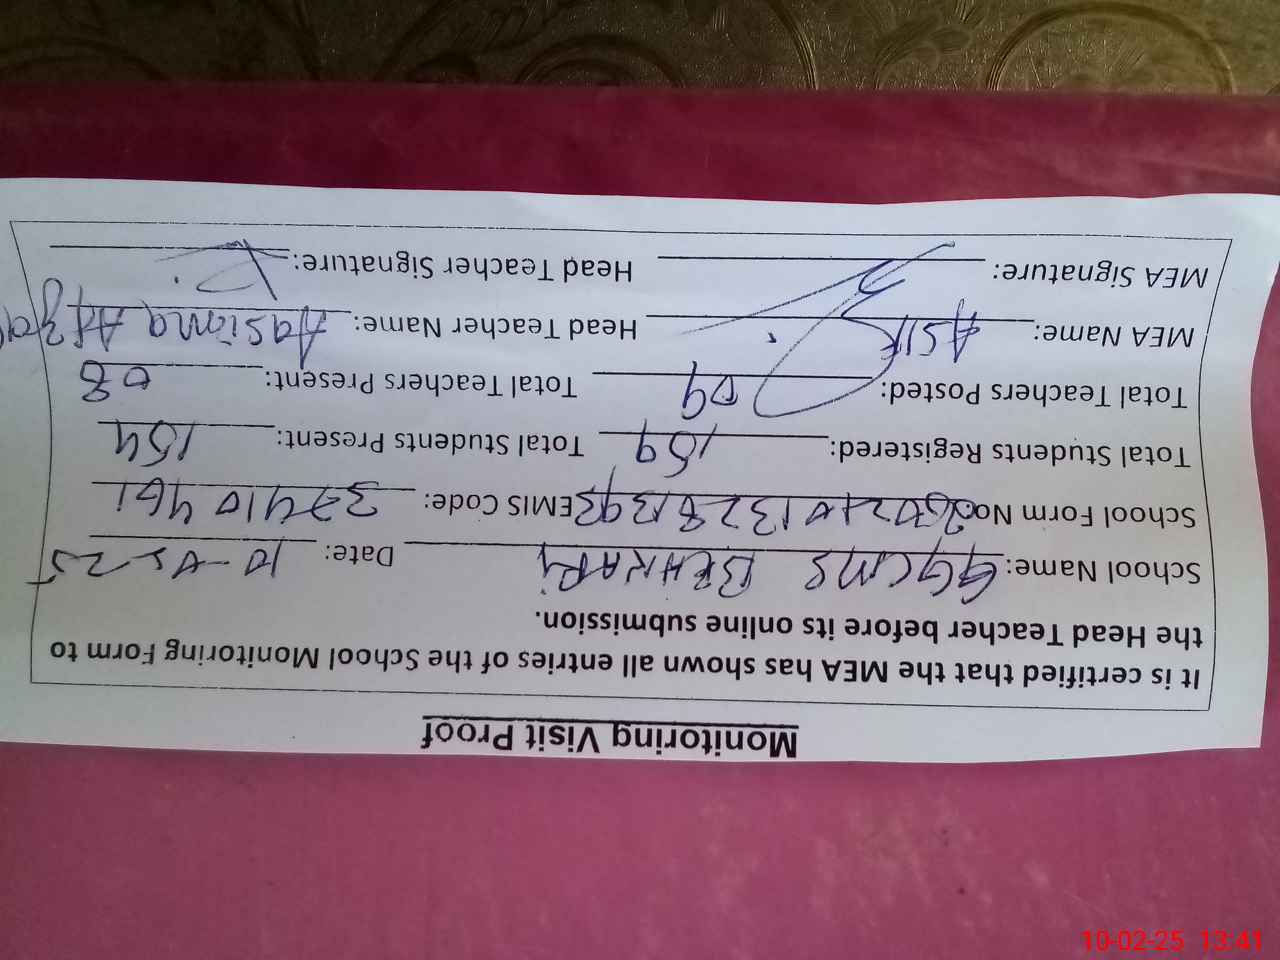 Monitoring Visit Proof
It is certified that the MEA has shown all entries of the School Monitoring Form to
the Head Teacher before its online submission.
School Name: GGCMS BEHKARI Date: 10-02-25
School Form No. EMIS Code: 37410461
Total Students Registered: 159 Total Students Present: 154
Total Teachers Posted: 09 Total Teachers Present: 08
MEA Name: ASIF Head Teacher Name: Aasima Afzal
MEA Signature: Head Teacher Signature:
10-02-25 13:41